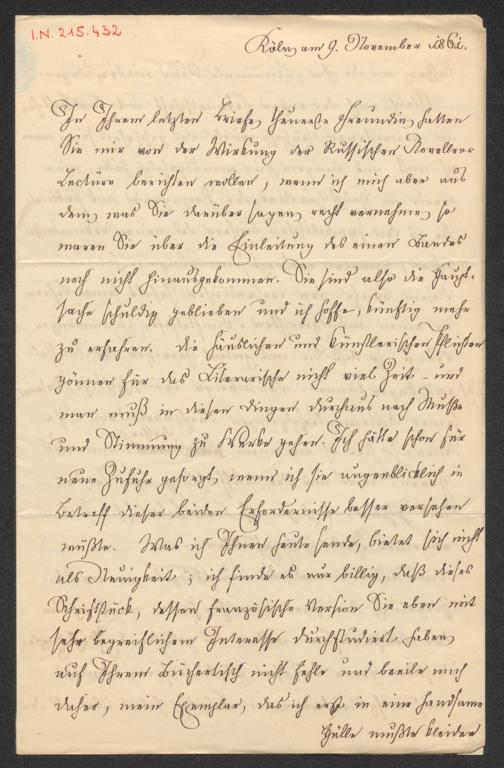 I.N. 215.432
Köln, am 9. November 1861.
In Ihrem letzten Briefe, theuerste Freundin, hatten
Sie mir von der Wirkung der Russischen Novellen-
Lectüre berichten wollen, wenn ich mich aber aus
dem, was Sie darüber sagen, recht vernehme, so
waren Sie über die Einleitung des einen Bandes
noch nicht hinausgekommen. Sie sind also die Haupt-
sache schuldig geblieben und ich hoffe, künftig mehr
zu erfahren. Die häuslichen und künstlerischen Pflichten
gönnen für das Literarische nicht viel Zeit – und
man muß in diesen Dingen durchaus nach Muße
und Stimmung zu Werke gehen. Ich hätte schon für
neue Zufuhr gesorgt, wenn ich sie augenblicklich in
Betreff dieser beiden Erfordernisse besser versehen
wüßte. Was ich Ihnen heute sende, bietet sich nicht
als Neuigkeit; ich finde es nur billig, daß dieses
Schriftstück, dessen französische Version Sie eben mit
sehr begreiflichem Interesse durchstudiert haben,
auf Ihrem Büchertisch nicht fehle und beeile mich
daher, mein Exemplar, das ich erst in eine handsame
Hülle mußte kleiden